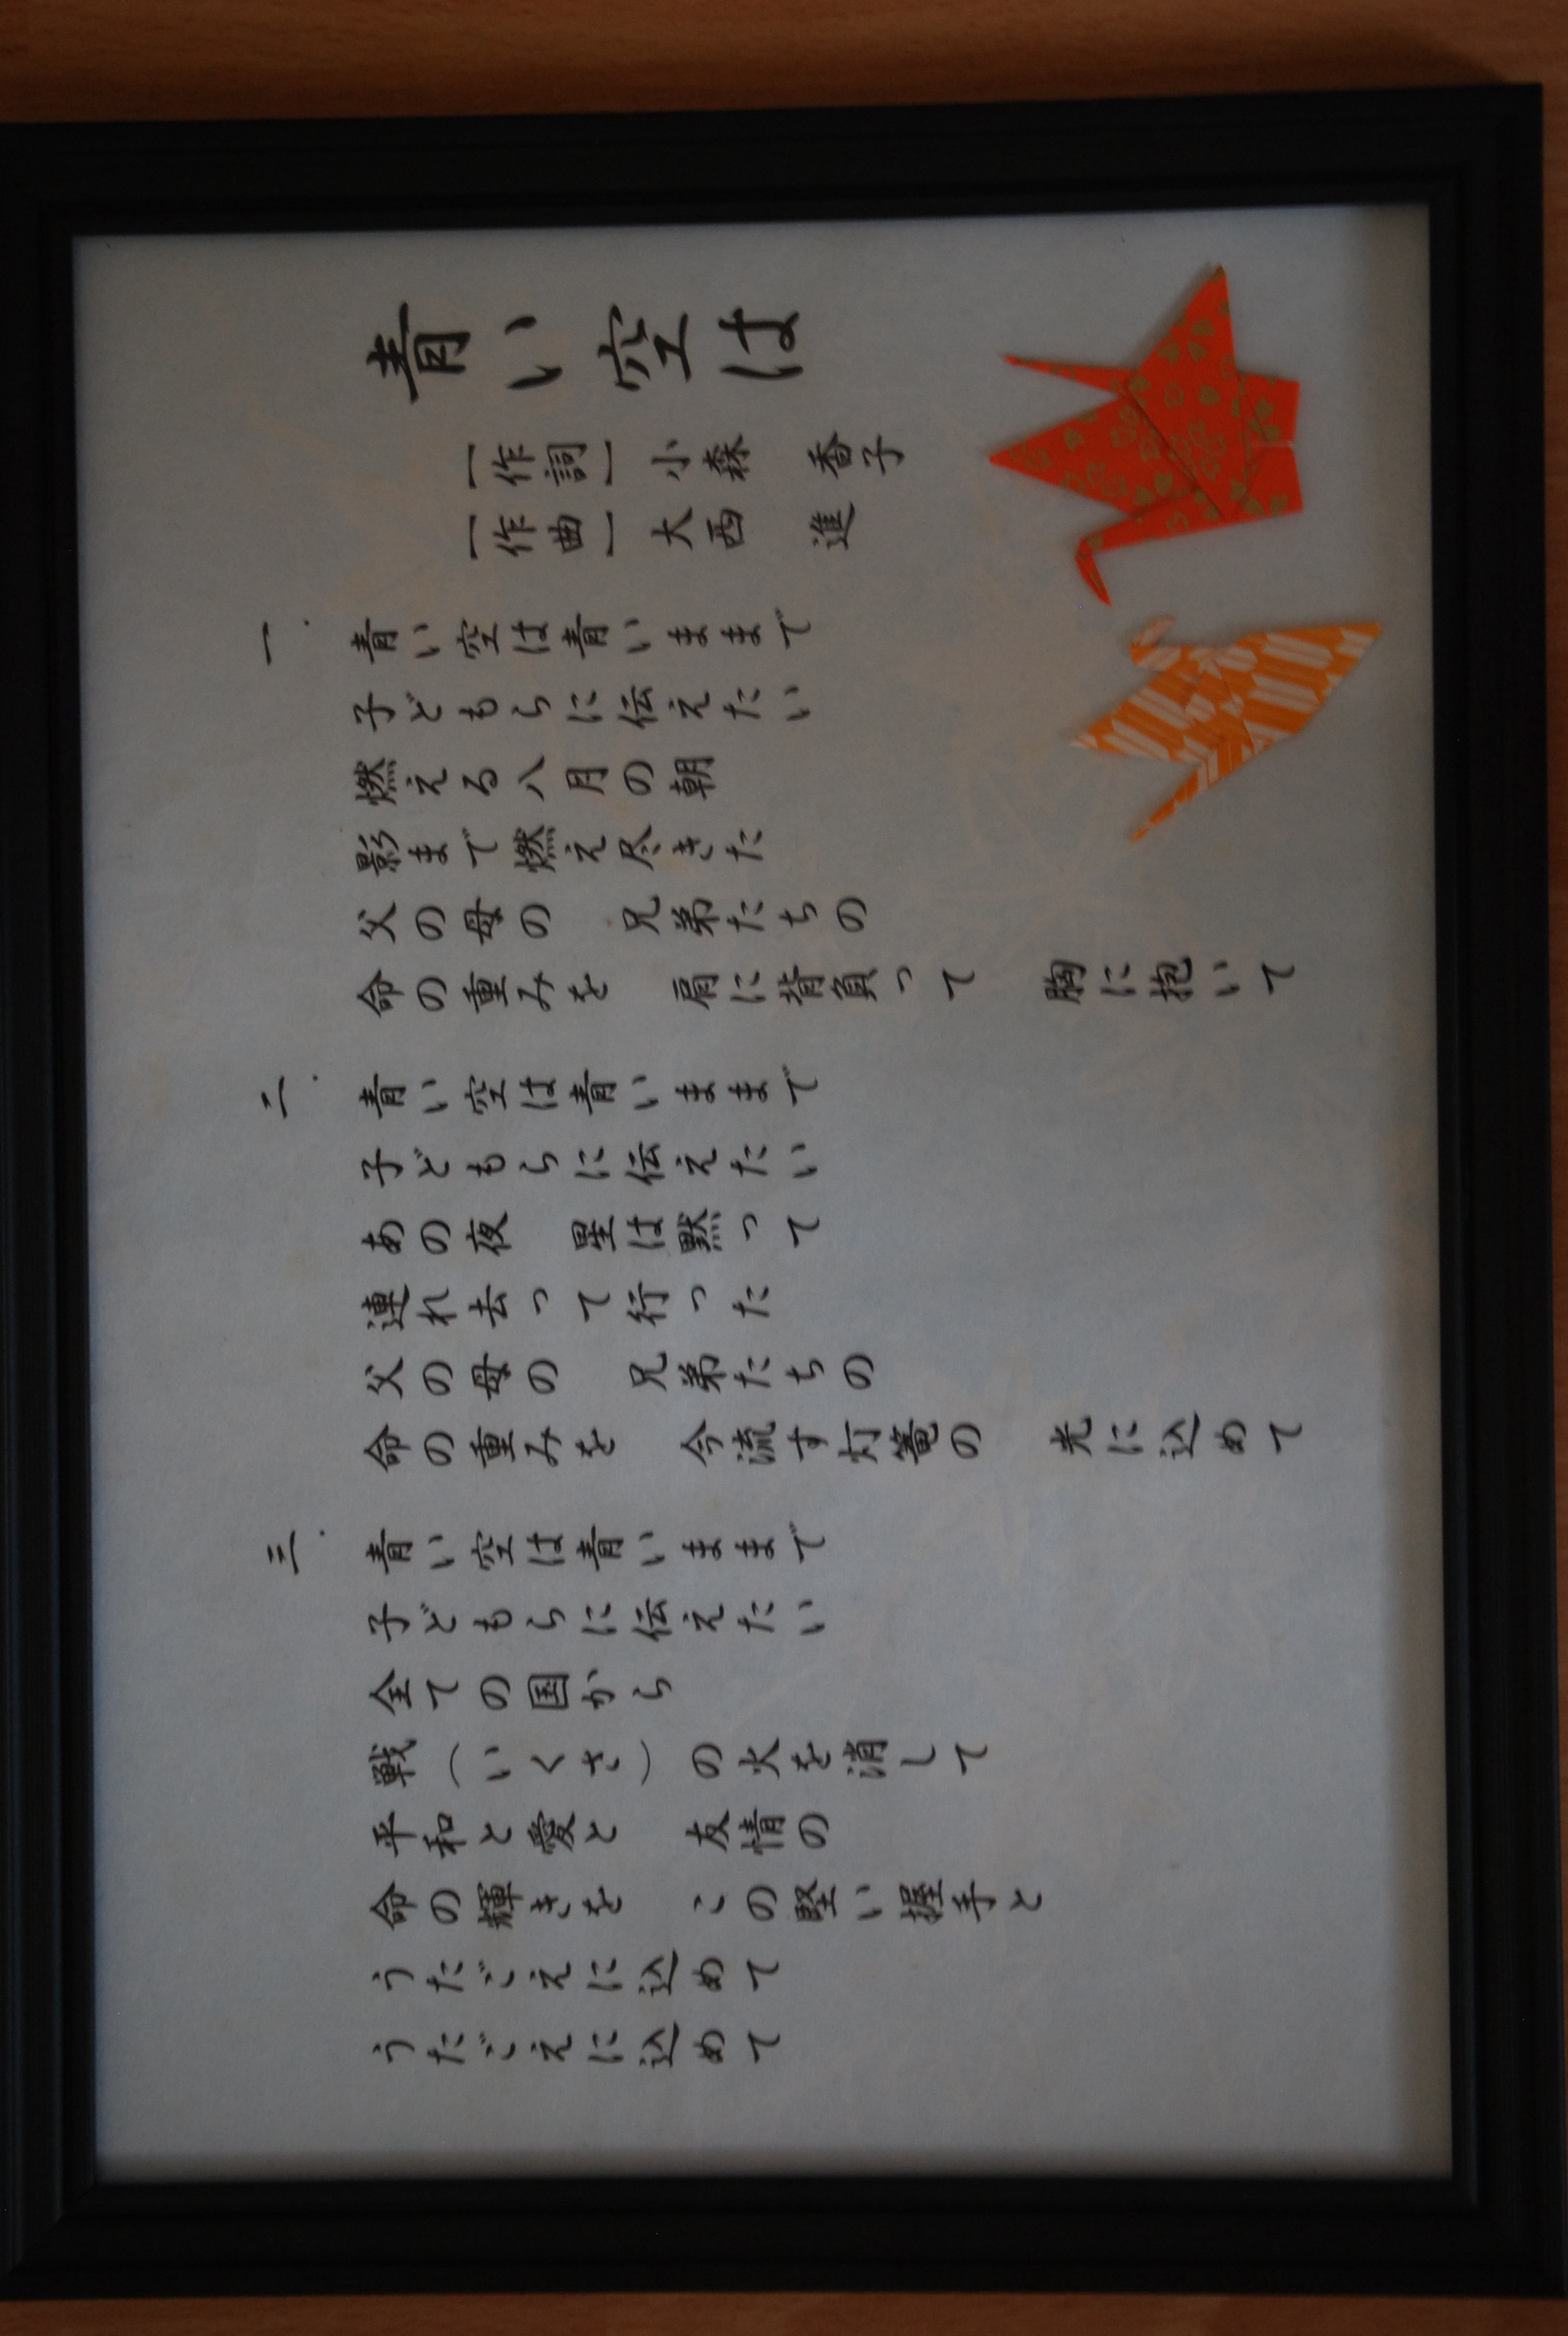 青い空は
【作詞】小森　香子
【作曲】大西　進
一．
青い空は青いままで
子どもらに伝えたい
燃える八月の朝
影まで燃え尽きた
父の母の　兄弟たちの
命の重みを　肩に背負って　胸に抱いて
二．
青い空は青いままで
子どもらに伝えたい
あの夜　星は黙って
連れ去って行った
父の母の　兄弟たちの
命の重みを　今流す灯篭の　光に込めて
三．
青い空は青いままで
子どもらに伝えたい
全ての国から
戦（いくさ）の火を消して
平和と愛と　友情の
命の輝きを　この堅い握手と
うたごえに込めて
うたごえに込めて